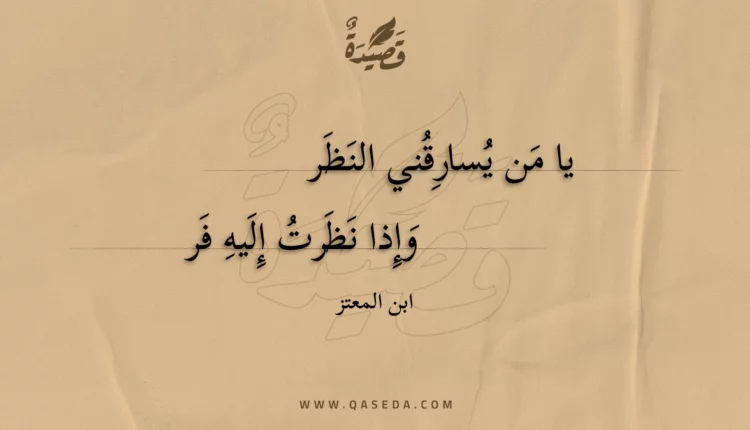 قَصِيدَةٌ
يا مَن يُسارِقُني النَظَر
وَإِذا نَظَرتُ إِلَيهِ فَر
ابن المعتز
WWW.QASEDA.COM